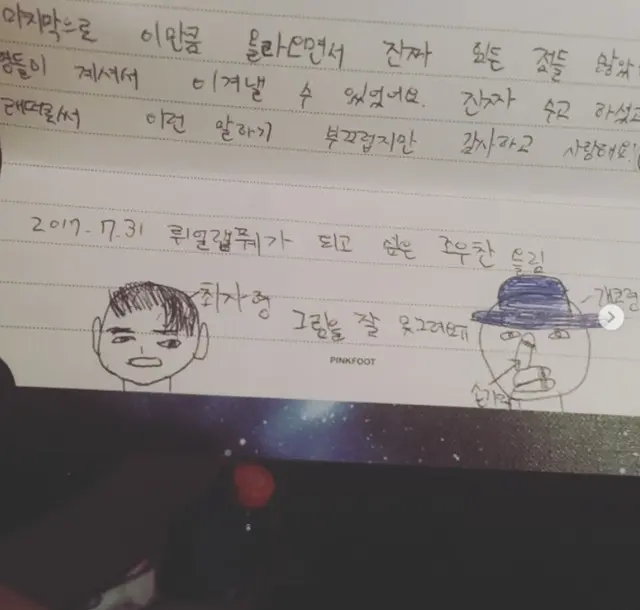 마지막으로 이만큼 올라오면서 진짜 힘든 점들 많았
형들이 계셔서 이겨낼 수 있었어요. 진짜 수고 하셨고
래퍼로써 이런 말하기 부끄럽지만 감사하고 사랑해요!
2017. 7.31 뤼얼랩풔가 되고 싶은 조우찬 올림
최자형
개코형
그림을 잘 못그려요ㅠ
PINKFOOT
손가락